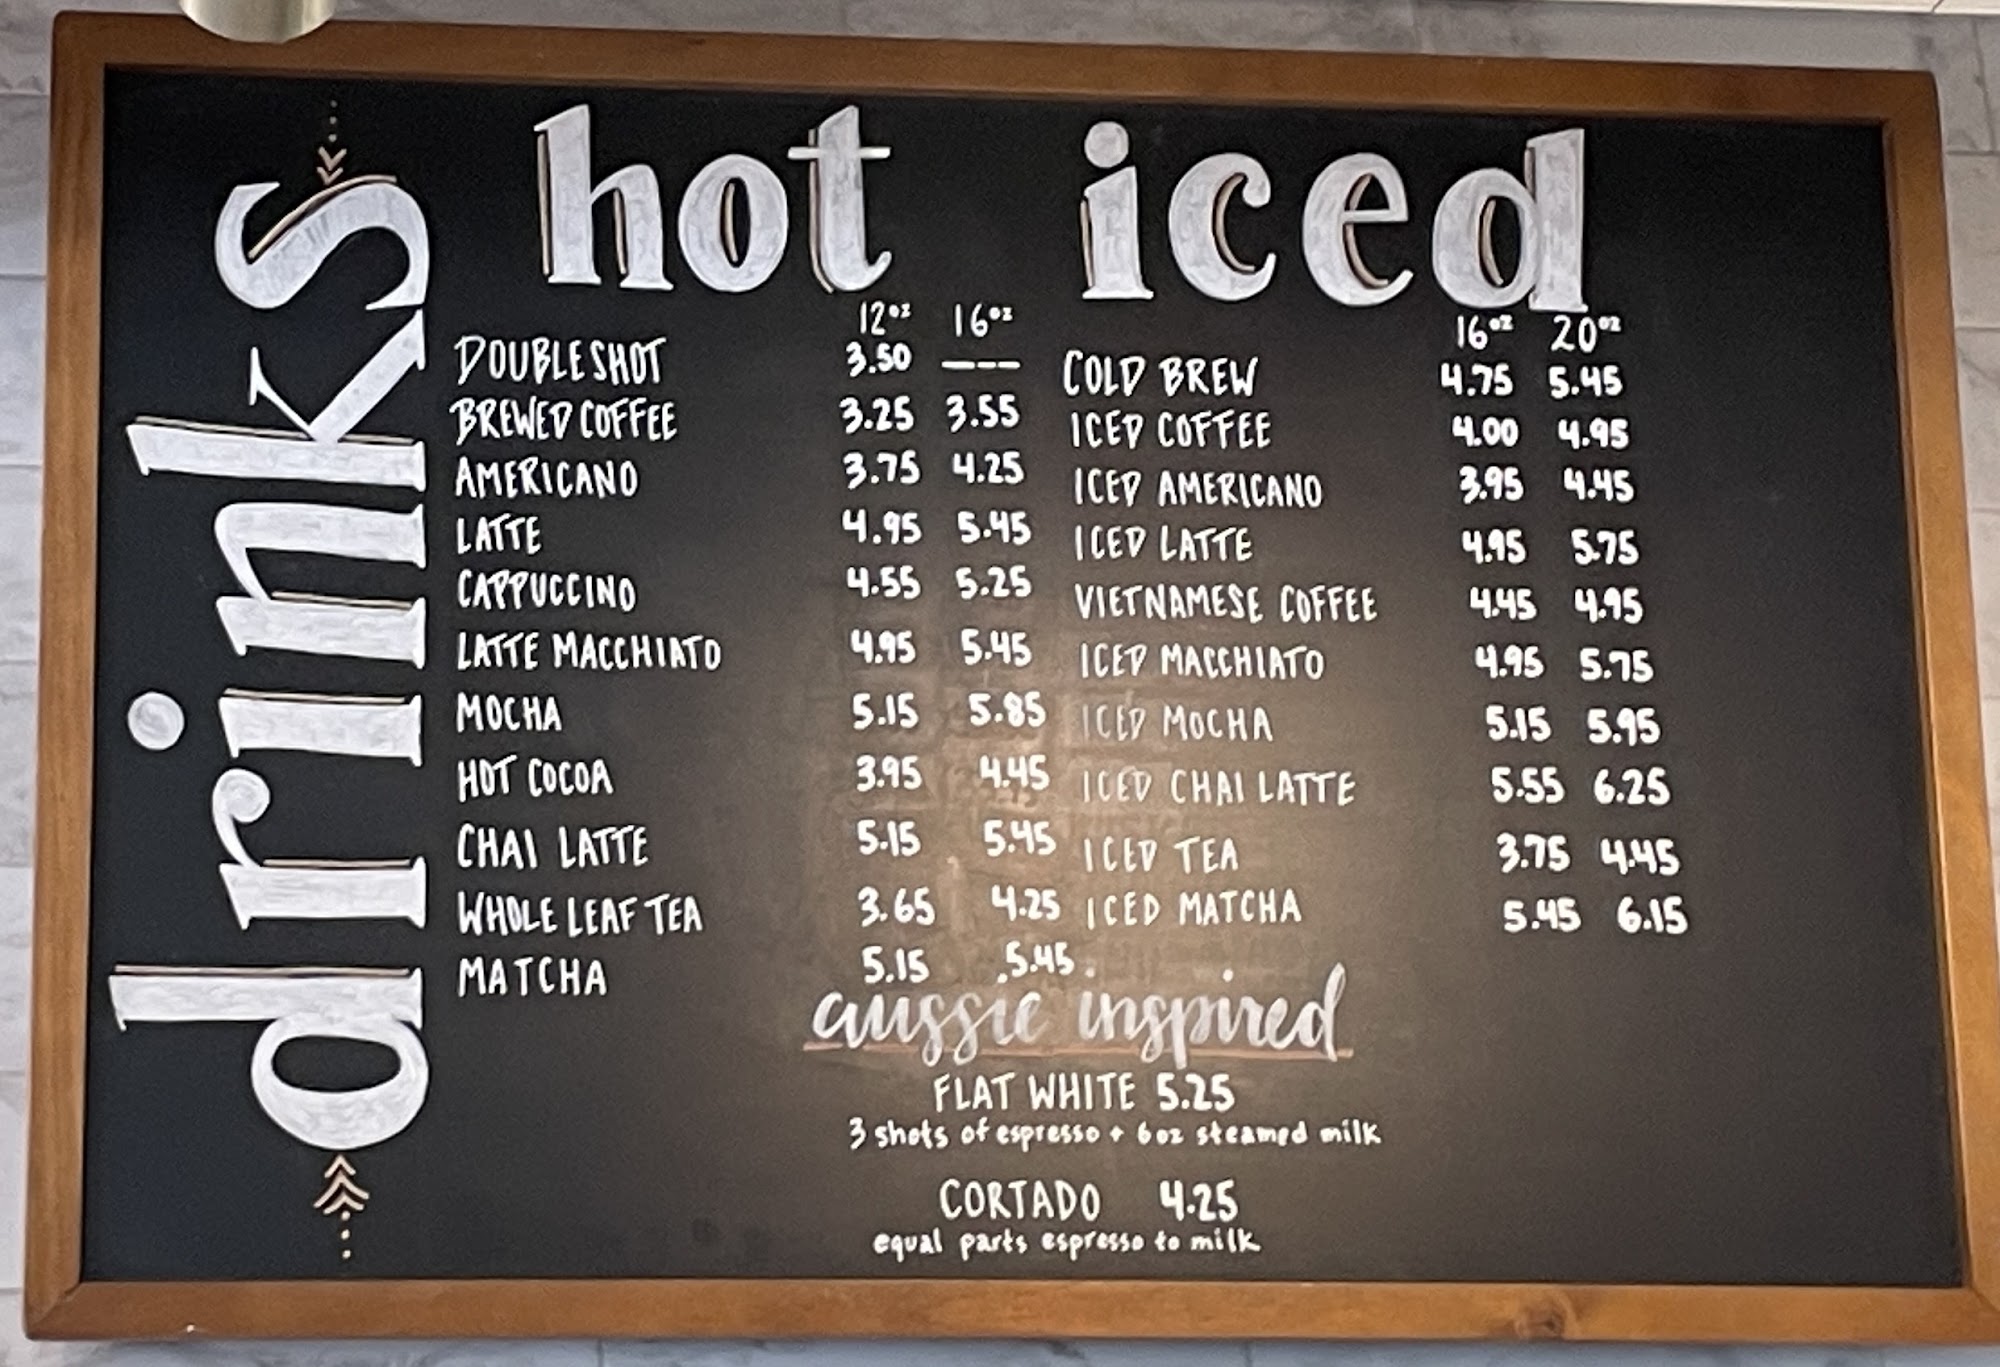 drinks
hot
12oz 16oz
DOUBLESHOT 3.50 ----
BREWED COFFEE 3.25 3.55
AMERICANO 3.75 4.25
LATTE 4.95 5.45
CAPPUCCINO 4.55 5.25
LATTE MACCHIATO 4.95 5.45
MOCHA 5.15 5.85
HOT COCOA 3.95 4.45
CHAI LATTE 5.15 5.45
WHOLE LEAF TEA 3.65 4.25
MATCHA 5.15 5.45
iced
16oz 20oz
COLD BREW 4.75 5.45
ICED COFFEE 4.00 4.95
ICED AMERICANO 3.95 4.45
ICED LATTE 4.95 5.75
VIETNAMESE COFFEE 4.45 4.95
ICED MACCHIATO 4.95 5.75
ICED MOCHA 5.15 5.95
ICED CHAI LATTE 5.55 6.25
ICED TEA 3.75 4.45
ICED MATCHA 5.45 6.15
aussie inspired
FLAT WHITE 5.25
3 shots of espresso + 6oz steamed milk
CORTADO 4.25
equal parts espresso to milk